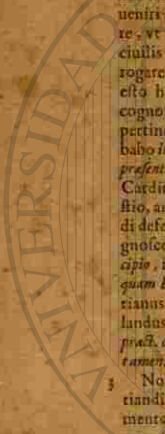 ueniri
re, vt
ciuilis
rogare
esto h
cogno
pertina
babo in
præsent
Cardin
stio, an
di defe
gnosco
cipio, i
quam b
tianus
landus
præst, c
tamen
3 No
tiandi
mento
VNIVERSIDAD